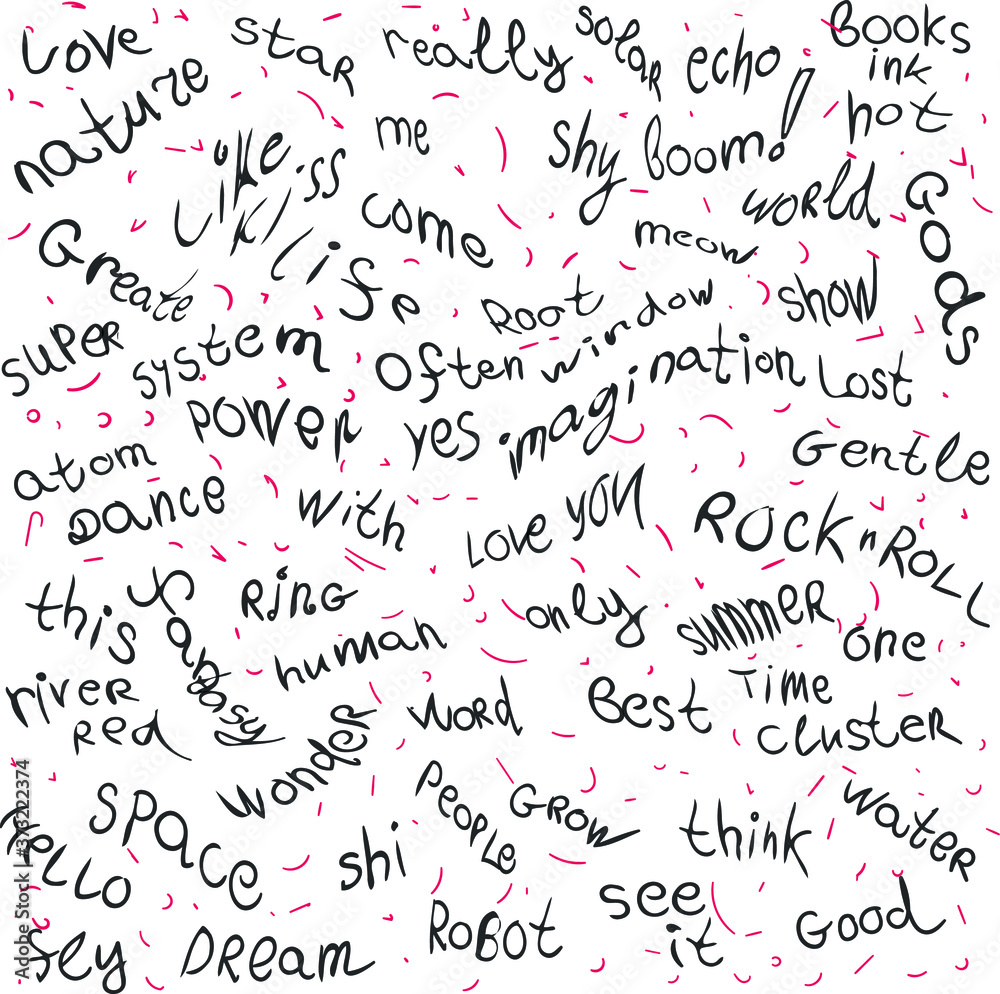 Love
star
really
solar
echo
Books
ink
nature
me
shy
boom!
hot
Like
kiss
come
world
Goods
meow
Greate
life
Root
window
show
super
system
Often
imagination
Lost
power
yes
Gentle
atom
Dance
with
Love you
Rock n Roll
this
fantasy
Ring
only
summer
one
human
river
red
word
Best
Time
cluster
wonder
space
people
Grow
think
water
ello
shi
see
it
Good
Robot
Dream
Adobe Stock | #373222374